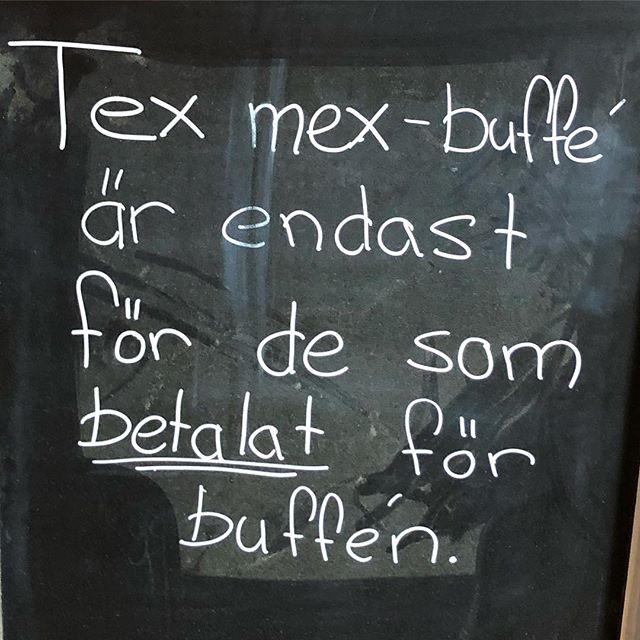 Tex mex-buffé
är endast
för de som
betalat för
buffén.